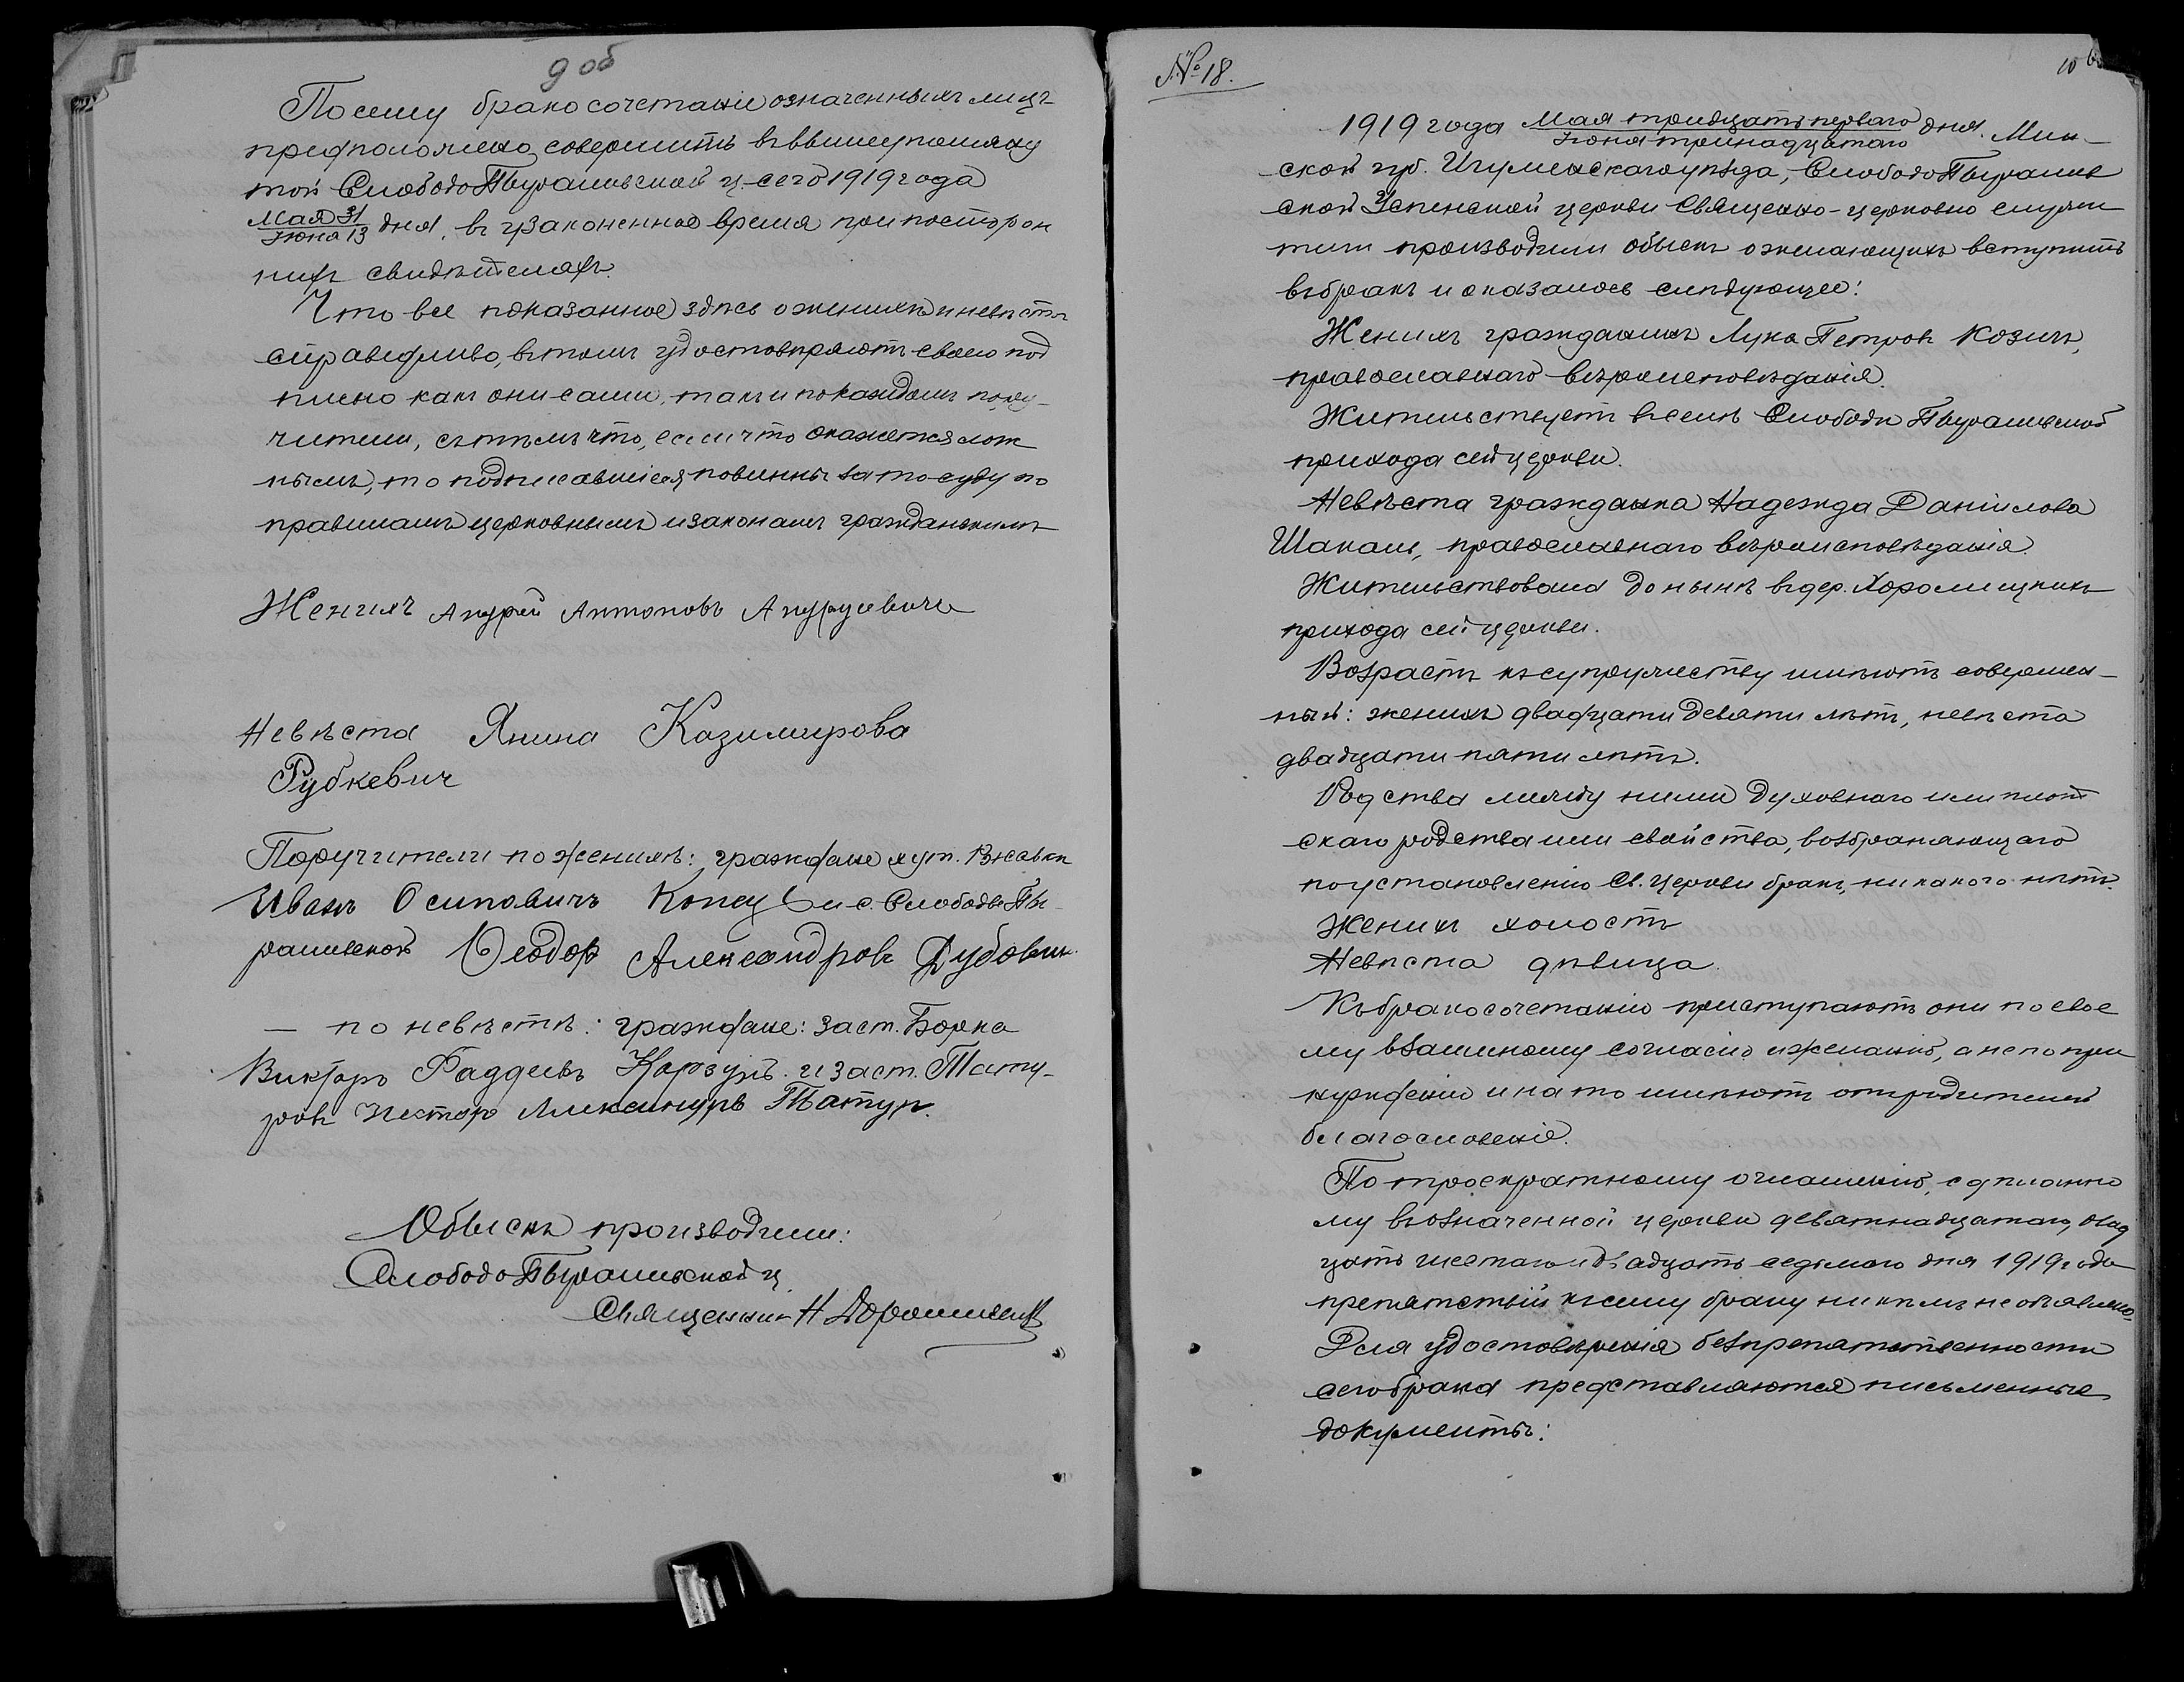 9 об
Посему бракосочетаніе означенныхъ лицъ
предположено совершить въ вышеупомяну
той Слободо Пырашевской ц. сего 1919 года
Мая 31
Іюня 13 дня, въ узаконенное время при посторон
нихъ свидѣтеляхъ.
Что все показанное здѣсь о женихѣ и невѣстѣ
справедливо, въ томъ удостовѣряютъ своею под
писью какъ они сами, такъ и по каждомъ пору-
чители, съ тѣмъ что, если что окажется лож
нымъ, то подписавшіеся повинны за то суду по
правиламъ церковнымъ и законамъ гражданскимъ
Женихъ Андрей Антоновъ
Невѣста Янина Казимирова
Рубкевич
Поручители по женихѣ: граждане хут.
Иванъ Осиповичъ и с. Слободы Пы-
рашевской Ѳеодор Александровъ Дубовик
— по невѣстѣ: граждане: заст. Борка
Викторъ Фаддеевъ Корзунъ и заст. Тату-
ров Нестор Татур.
Обыскъ производили:
Слободо Пырашевской ц.
Священникъ Н
№ 18.
10
1919 года Мая тридцать перваго дня. Мин-
Іюня тринадцатаго
ской губ. Игуменскаго уѣзда, Слободо Пырашев
ской Успенской церкви священно-церковно служи
тели производили обыскъ о желающихъ вступить
въ бракъ и оказалось слѣдующее:
Женихъ гражданинъ Лука Петровъ Козичъ,
православнаго вѣроисповѣданія.
Жительствуетъ въ селѣ Слободѣ Пырашевской
прихода сей церкви.
Невѣста гражданка Надежда Даніилова
Шакаль, православнаго вѣроисповѣданія.
Жительствовала до нынѣ въ дер. Хоромицкихъ
прихода сей церкви.
Возрастъ къ супружеству имѣютъ совершен-
ный: женихъ двадцати девяти лѣтъ, невѣста
двадцати пяти лѣтъ.
Родства между ними духовнаго или плот
скаго родства или свойства, возбраняющаго
по установленію Св. Церкви бракъ, никакого нѣтъ.
Женихъ холостъ
Невѣста дѣвица.
Къ бракосочетанію приступаютъ они по свое
му взаимному согласію и желанію, а не по при
нужденію и на то имѣютъ отъ родителей
благословеніе.
По троекратному оглашенію, сдѣланно
му въ означенной церкви девятнадцатаго, двад
цать шестаго и двадцать седьмого дня 1919 года
препятствій къ сему браку никѣмъ не объявлено.
Для удостовѣренія безпрепятственности
сего брака представляются письменные
документы: